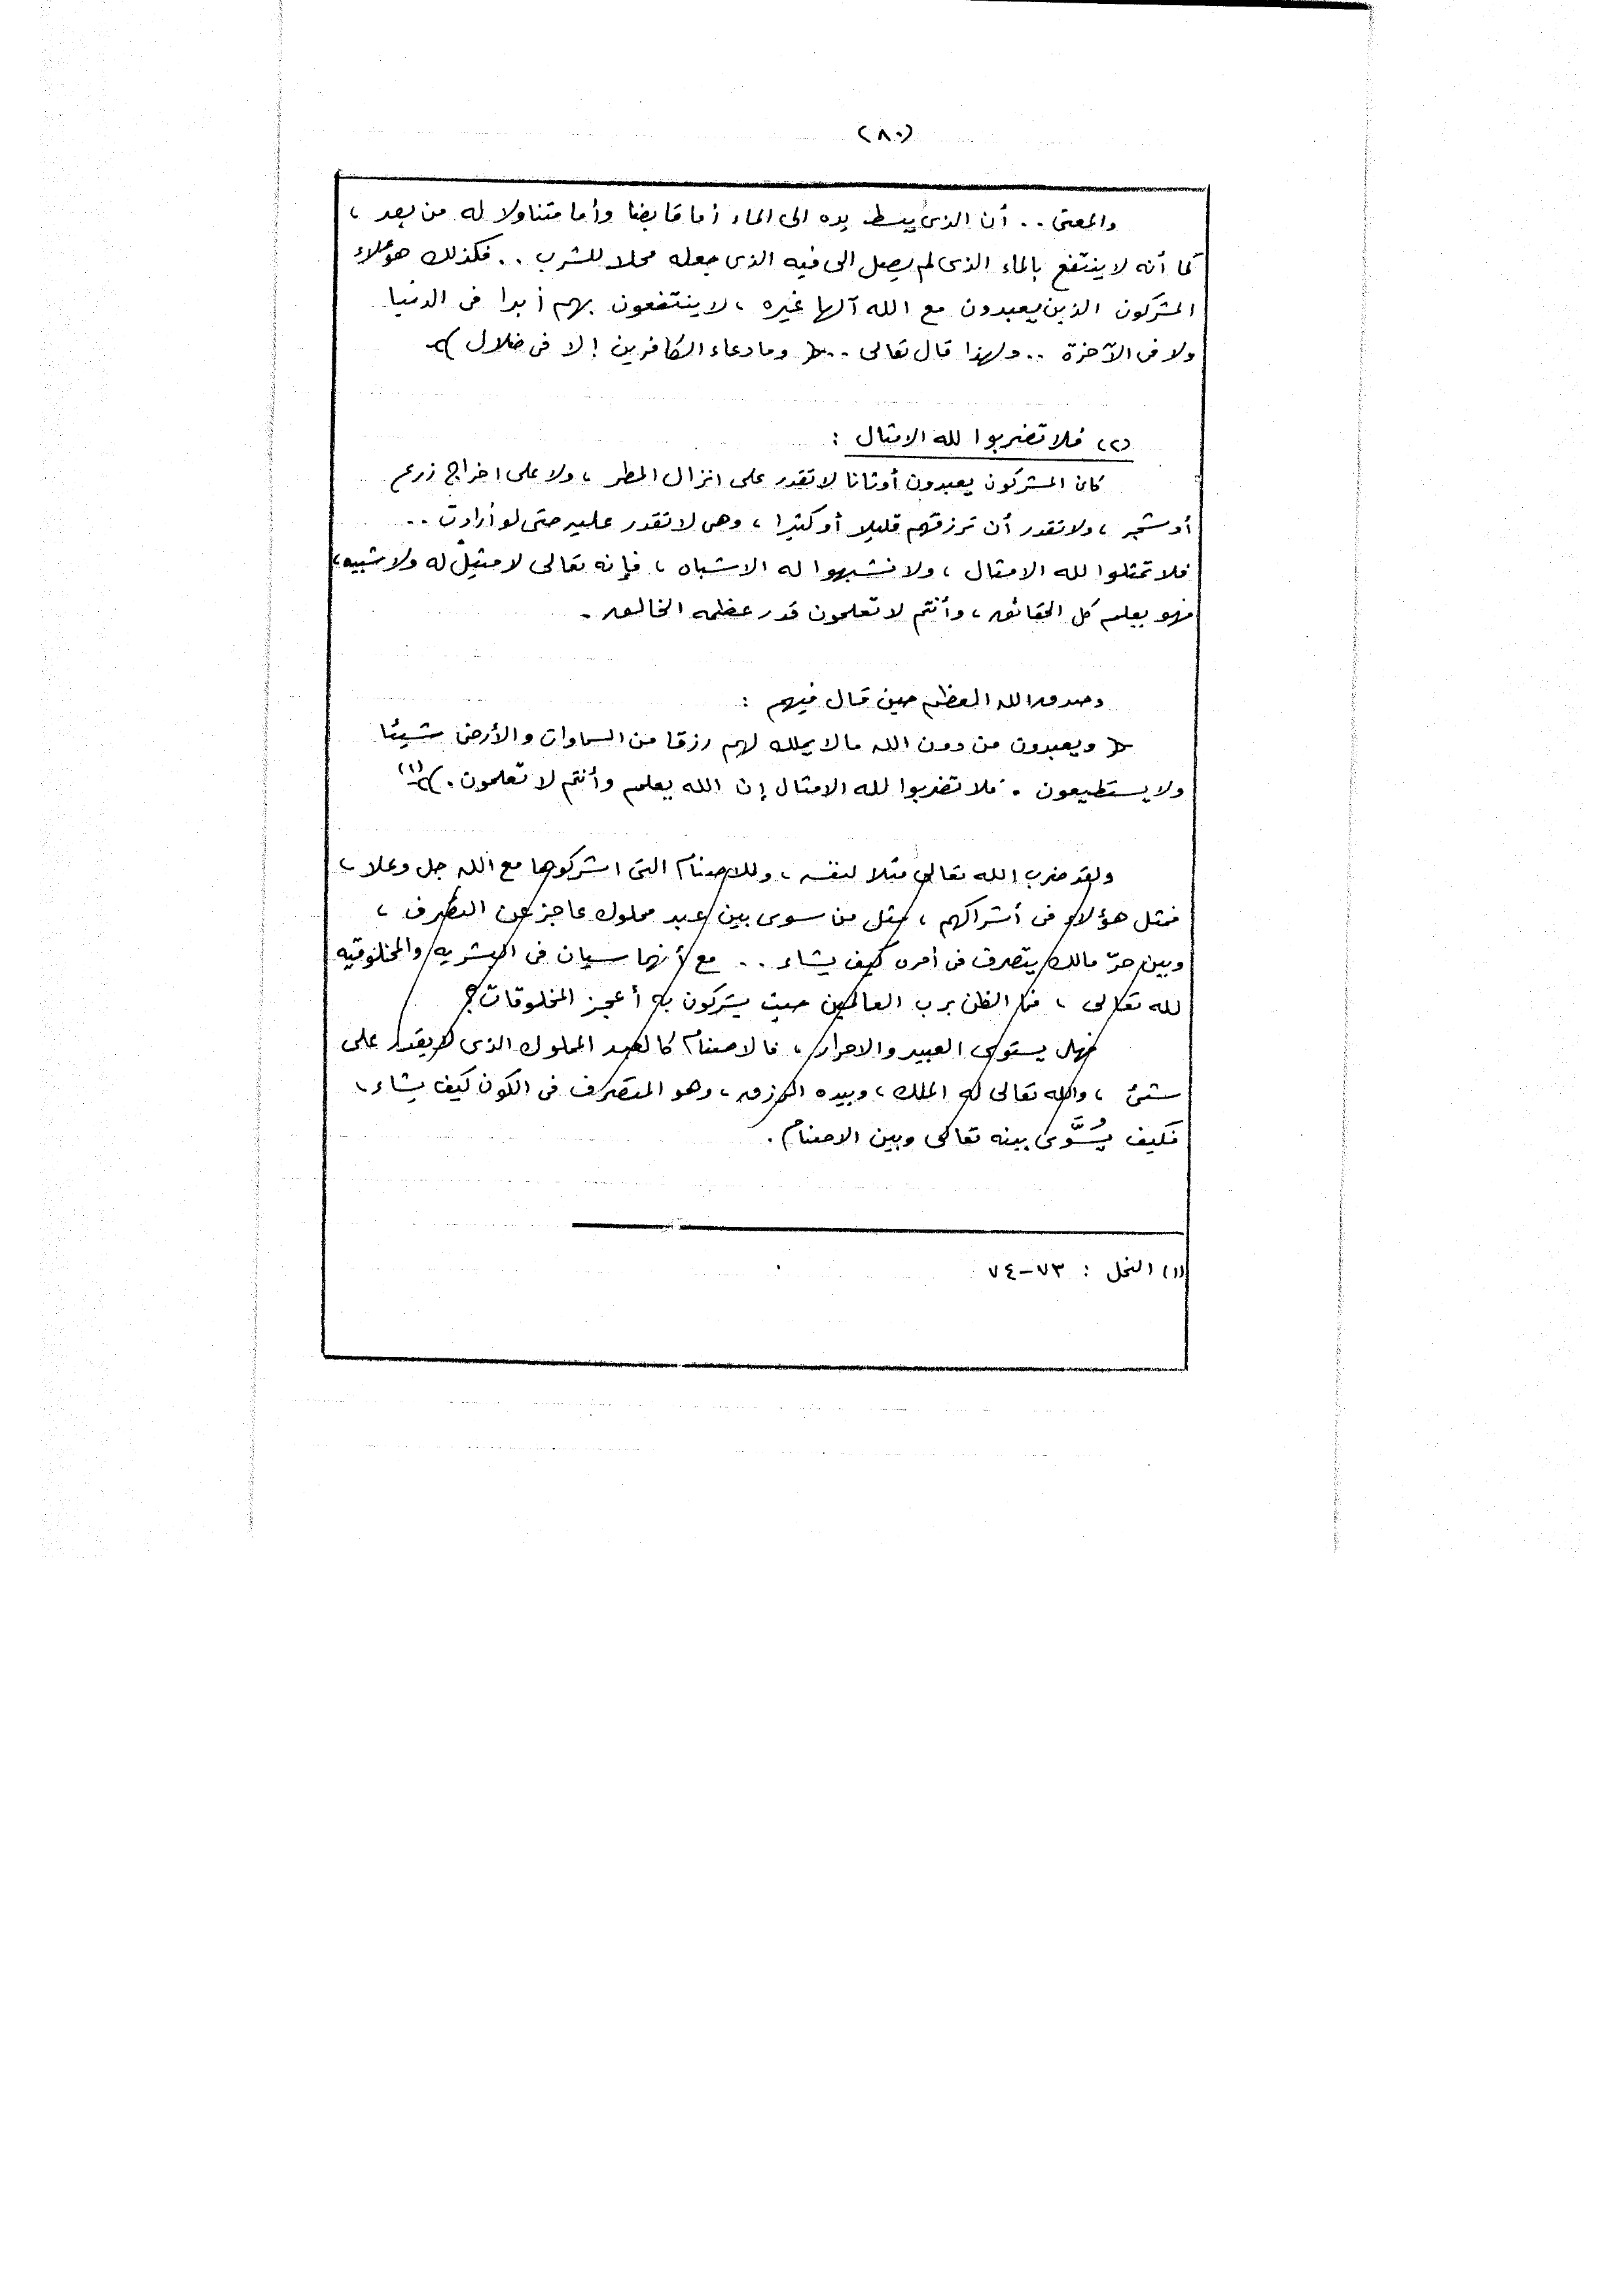 (٨٠)
والمعنى .. أن الذى يبسط يده الى الماء أما قابضا وأما متناولا له من بعد ،
كما أنه لا ينتفع بالماء الذى لم يصل الى فيه الذى جعله محلا للشرب .. فكذلك هؤلاء
المشركون الذين يعبدون مع الله آلها غيره ، لا ينتفعون بهم أبدا فى الدنيا
ولا فى الآخرة .. ولهذا قال تعالى .. ﴿ وما دعاء الكافرين إلا فى ضلال ﴾
(٢) فلا تضربوا لله الامثال :
كان المشركون يعبدون أوثانا لا تقدر على انزال المطر ، ولا على اخراج زرع
أو شجر ، ولا تقدر أن ترزقهم قليلا أو كثيرا ، وهى لا تقدر عليه حتى لو أرادت ..
فلا تمثلوا لله الامثال ، ولا تشبهوا له الاشباه ، فإنه تعالى لا مثيل له ولا شبيه ،
فهو يعلم كل الحقائق ، وأنتم لا تعلمون قدر عظمه الخالق .
وصدق الله العظيم حين قال فيهم :
﴿ ويعبدون من دون الله ما لا يملك لهم رزقا من السماوات والأرض شيئا
ولا يستطيعون . فلا تضربوا لله الامثال إن الله يعلم وأنتم لا تعلمون . ﴾ (١)
ولقد ضرب الله تعالى مثلا لنفسه ، وللاصنام التى اشركوها مع الله جل وعلا ،
فمثل هؤلاء فى أشراكهم ، مثل من سوى بين عبد مملوك عاجز عن التصرف ،
وبين حرّ مالك يتصرف فى أمره كيف يشاء .. مع أنهما سيان فى البشريه والمخلوقيه
لله تعالى ، فما الظن برب العالمين حيث يشركون به أعجز المخلوقات ؟
فهل يستوى العبيد والاحرار ، فالاصنام كالعبد المملوك الذى لا يقدر على
شئ ، والله تعالى له الملك ، وبيده الرزق ، وهو المتصرف فى الكون كيف يشاء ،
فكيف يُسَوَّى بينه تعالى وبين الاصنام .
(١) النحل : ٧٣-٧٤